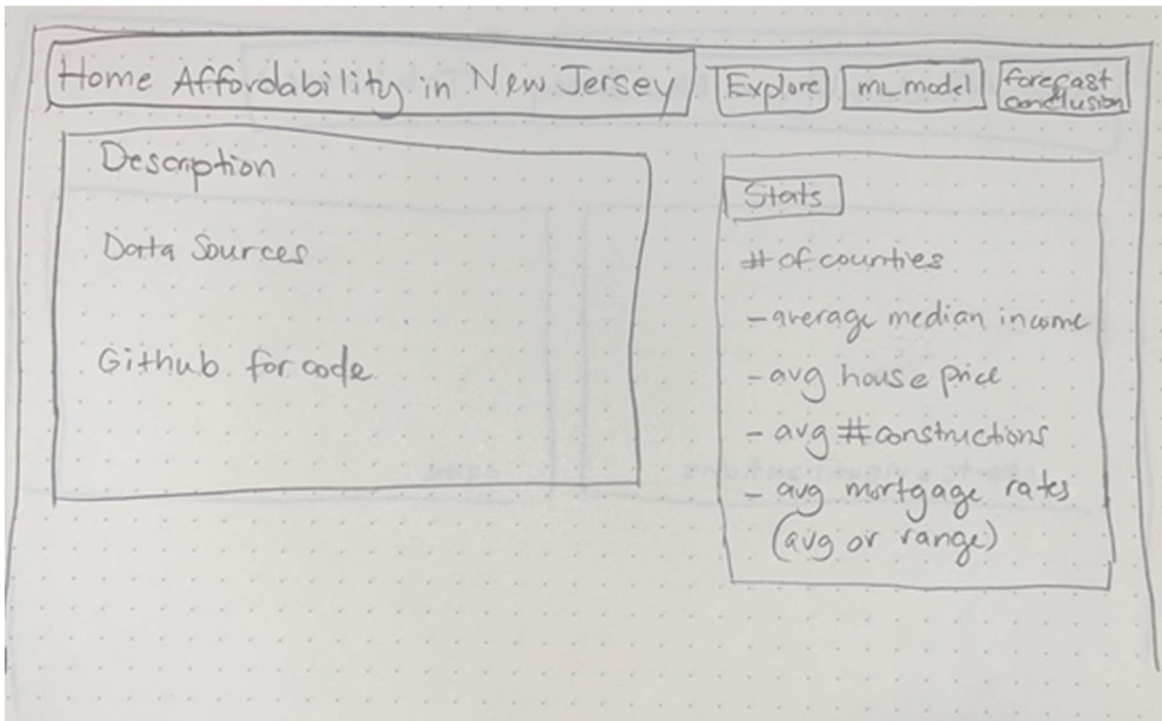 Home Affordability in New Jersey
Explore
ML model
forecast
conclusion
Description
Data Sources
Github for code
Stats
# of counties
- average median income
- avg house price
- avg # constructions
- avg mortgage rates
(avg or range)